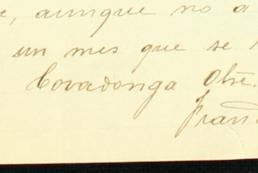 , aunque no a
un mes que se
Covadonga Otre.
Fran